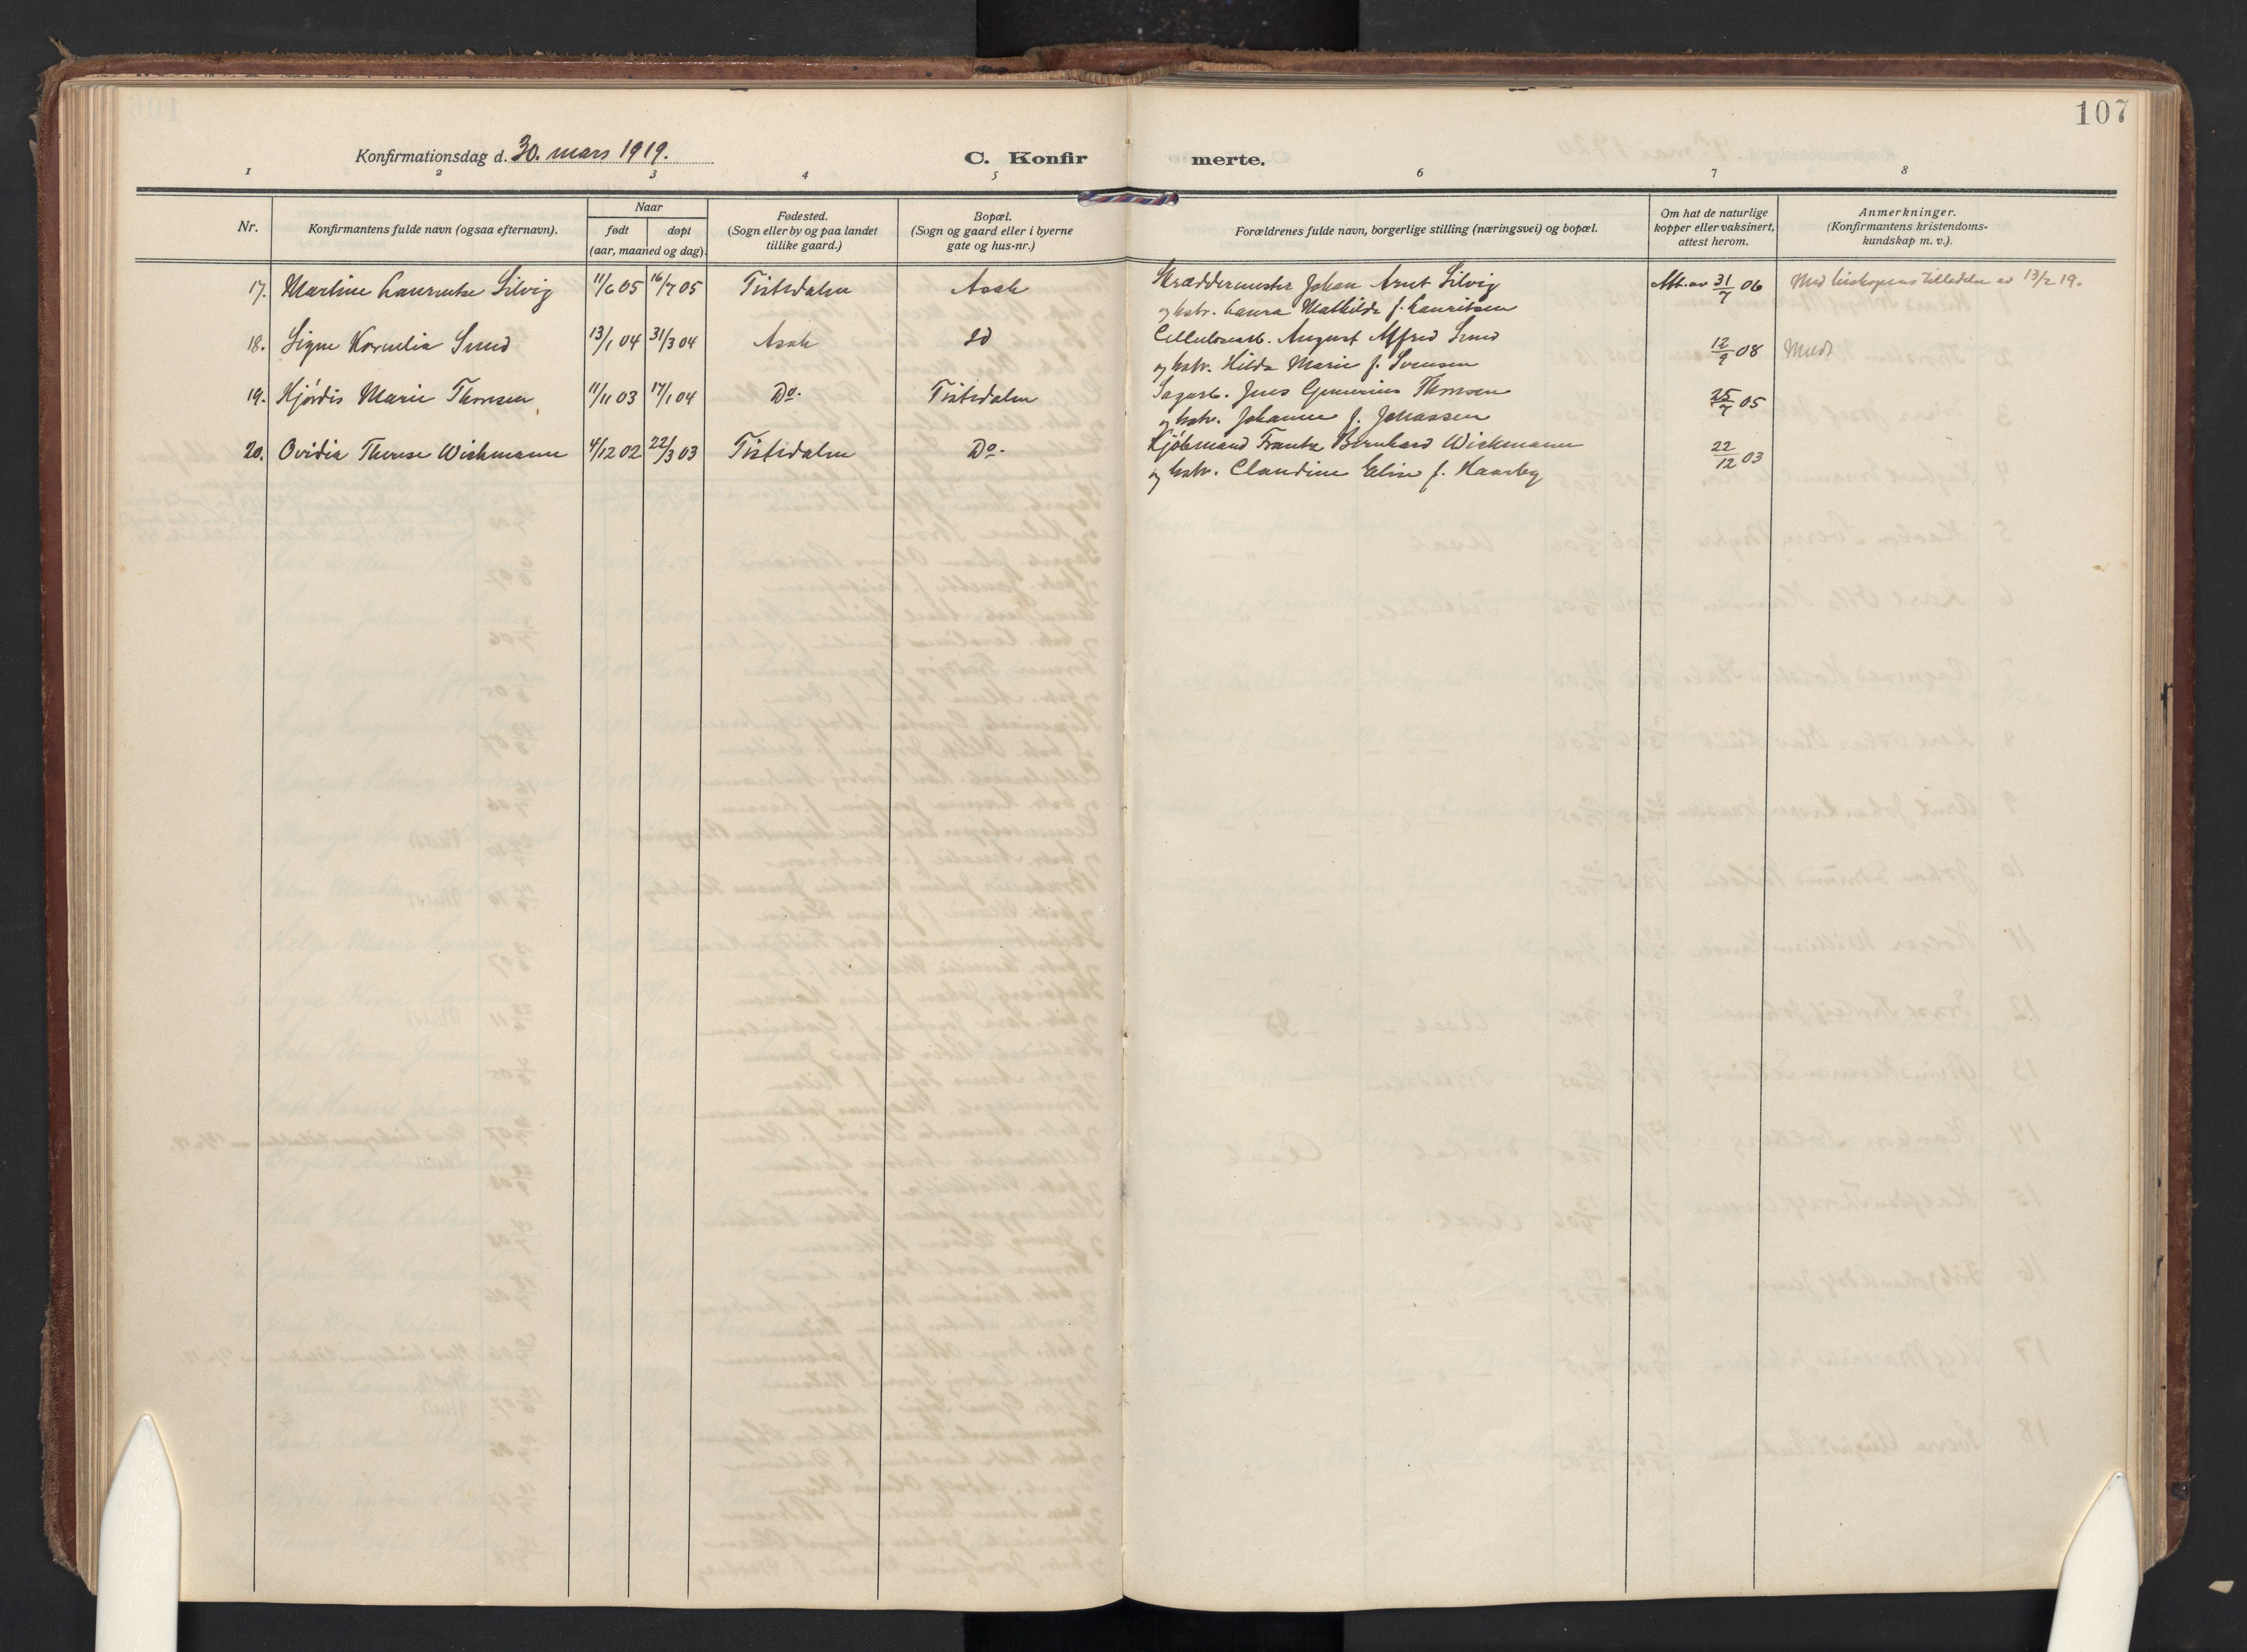 107
Konfirmationsdag d. 30. mars 1919.
C. Konfir merte.
1 2 3 4 5 6 7 8
Nr.
Konfirmantens fulde navn (ogsaa efternavn).
Naar
født døpt
(aar, maaned og dag).
Fødested.
(Sogn eller by og paa landet
tillike gaard.)
Bopæl.
(Sogn og gaard eller i byerne
gate og hus-nr.)
Forældrenes fulde navn, borgerlige stilling (næringsvei) og bopæl.
Om hat de naturlige
kopper eller vaksinert,
attest herom.
Anmerkninger.
(Konfirmantens kristendoms-
kundskap m. v.).
17. Martine Laurentse Silvig 11/6 05 16/7 05 Tistedalen Asak Skræddermester Johan Arnt Silvig Att. av 31/7 06 Med biskopens tilladelse av 13/2 19.
og hstr. Laura Mathilde f. Lauritsen
18. Signe Kornelia Lund 13/1 04 31/3 04 Asak Id Cellulosearb. August Alfred Lund 12/9 08 Meldt
og hstr. Hilda Marie f. Svensen
19. Hjørdis Marie Thomsen 11/11 03 17/1 04 Do. Tistedalen Sagarb. Jens Gunerius Thomsen 25/7 05
og hstr. Johanne f. Johassen
20. Ovidia Therese Wickmann 4/12 02 22/3 03 Tistedalen Do. Kjøbmand Frantz Bernhard Wickmann 22/12 03
og hstr. Claudine Elise f. Haarby